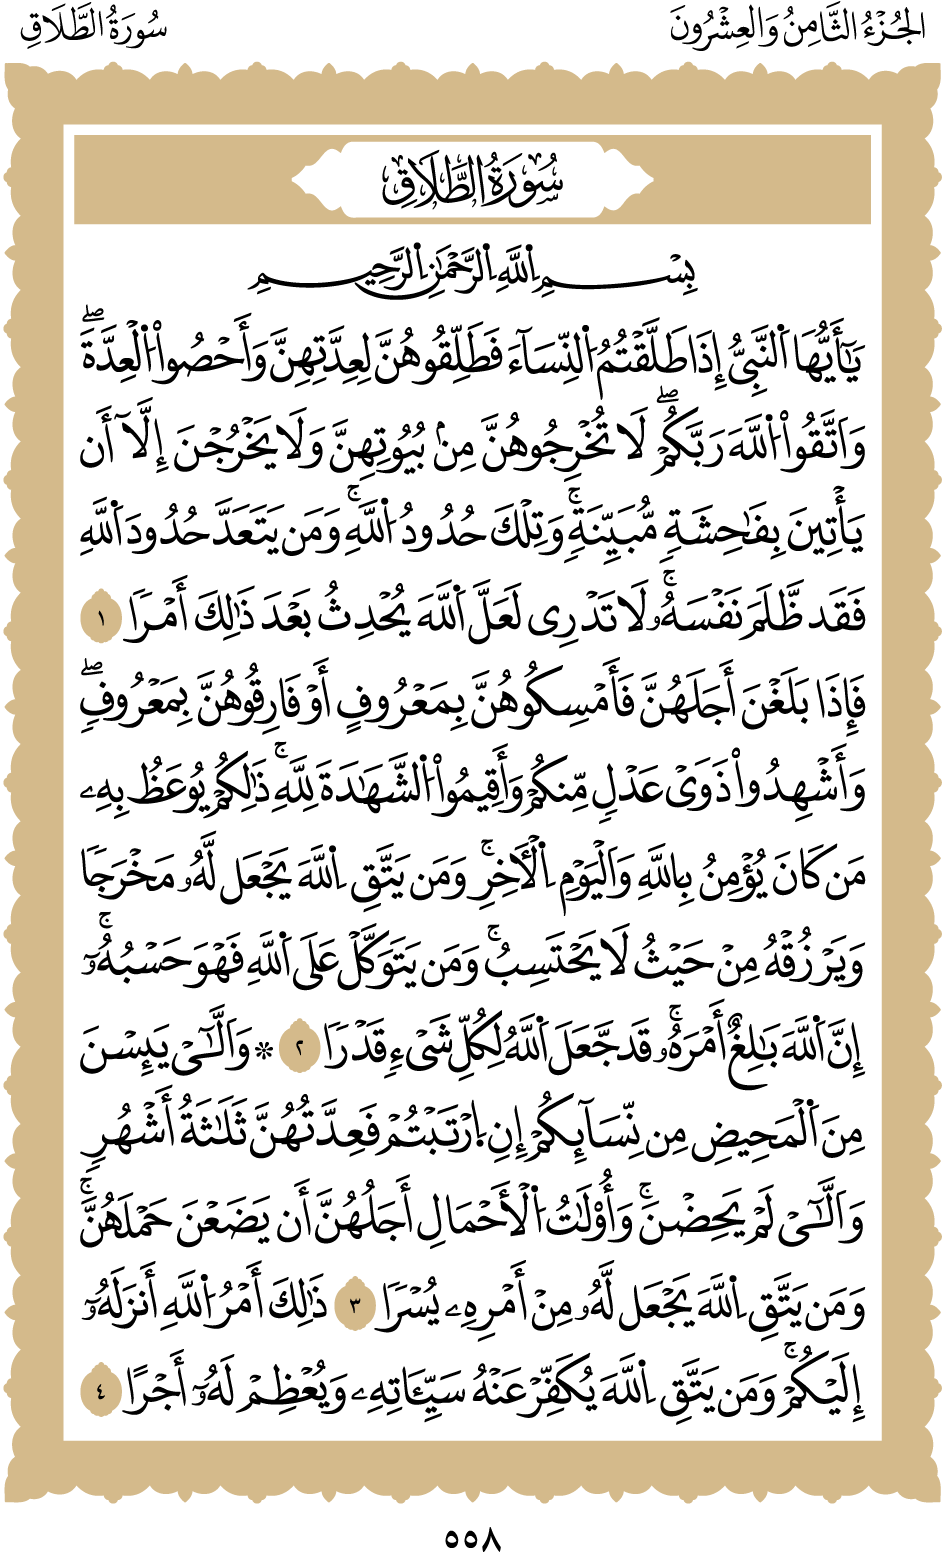 الجُزْءُ الثَّامِنُ وَالعِشْرُونَ
سُورَةُ الطَّلَاقِ
سُورَةُ الطَّلَاقِ
بِسْمِ اِ۬للَّهِ اِ۬لرَّحْمَٰنِ اِ۬لرَّحِيمِ
يَٰٓأَيُّهَا اَ۬لنَّبِيُّ إِذَا طَلَّقْتُمُ اُ۬لنِّسَآءَ فَطَلِّقُوهُنَّ لِعِدَّتِهِنَّ وَأَحْصُواْ اُ۬لْعِدَّةَۖ
وَاَتَّقُواْ اُ۬للَّهَ رَبَّكُمْۖ لَا تُخْرِجُوهُنَّ مِنۢ بُيُوتِهِنَّ وَلَا يَخْرُجْنَ إِلَّآ أَن
يَأْتِينَ بِفَٰحِشَةٖ مُّبَيِّنَةٖۚ وَتِلْكَ حُدُودُ اُ۬للَّهِۚ وَمَن يَتَعَدَّ حُدُودَ اَ۬للَّهِ
فَقَد ظَّلَمَ نَفْسَهُۥۚ لَا تَدْرِي لَعَلَّ اَ۬للَّهَ يُحْدِثُ بَعْدَ ذَٰلِكَ أَمْرٗا ١
فَإِذَا بَلَغْنَ أَجَلَهُنَّ فَأَمْسِكُوهُنَّ بِمَعْرُوفٍ أَوْ فَارِقُوهُنَّ بِمَعْرُوفٖۖ
وَأَشْهِدُواْ ذَوَيْ عَدْلٖ مِّنكُمْ وَأَقِيمُواْ اُ۬لشَّهَٰدَةَ لِلَّهِۚ ذَٰلِكُمْ يُوعَظُ بِهِۦ
مَن كَانَ يُؤْمِنُ بِاللَّهِ وَاَلْيَوْمِ اِ۬لْأٓخِرِۚ وَمَن يَتَّقِ اِ۬للَّهَ يَجْعَل لَّهُۥ مَخْرَجٗا
وَيَرْزُقْهُ مِنْ حَيْثُ لَا يَحْتَسِبُۚ وَمَن يَتَوَكَّلْ عَلَى اَ۬للَّهِ فَهْوَ حَسْبُهُۥٓۚ
إِنَّ اَ۬للَّهَ بَٰلِغٌ أَمْرَهُۥۚ قَد جَّعَلَ اَ۬للَّهُ لِكُلِّ شَيْءٖ قَدْرٗا ٢ ۞ وَاَلَّٰٓيْ يَئِسْنَ
مِنَ اَ۬لْمَحِيضِ مِن نِّسَآئِكُمْ إِنِ اِ۪رْتَبْتُمْ فَعِدَّتُهُنَّ ثَلَٰثَةُ أَشْهُرٖ
وَاَلَّٰٓيْ لَمْ يَحِضْنَۚ وَأُوْلَٰتُ اُ۬لْأَحْمَالِ أَجَلُهُنَّ أَن يَضَعْنَ حَمْلَهُنَّۚ
وَمَن يَتَّقِ اِ۬للَّهَ يَجْعَل لَّهُۥ مِنْ أَمْرِهِۦ يُسْرٗا ٣ ذَٰلِكَ أَمْرُ اُ۬للَّهِ أَنزَلَهُۥٓ
إِلَيْكُمْۚ وَمَن يَتَّقِ اِ۬للَّهَ يُكَفِّرْ عَنْهُ سَيِّـَٔاتِهِۦ وَيُعْظِمْ لَهُۥٓ أَجْرًا ٤
٥٥٨